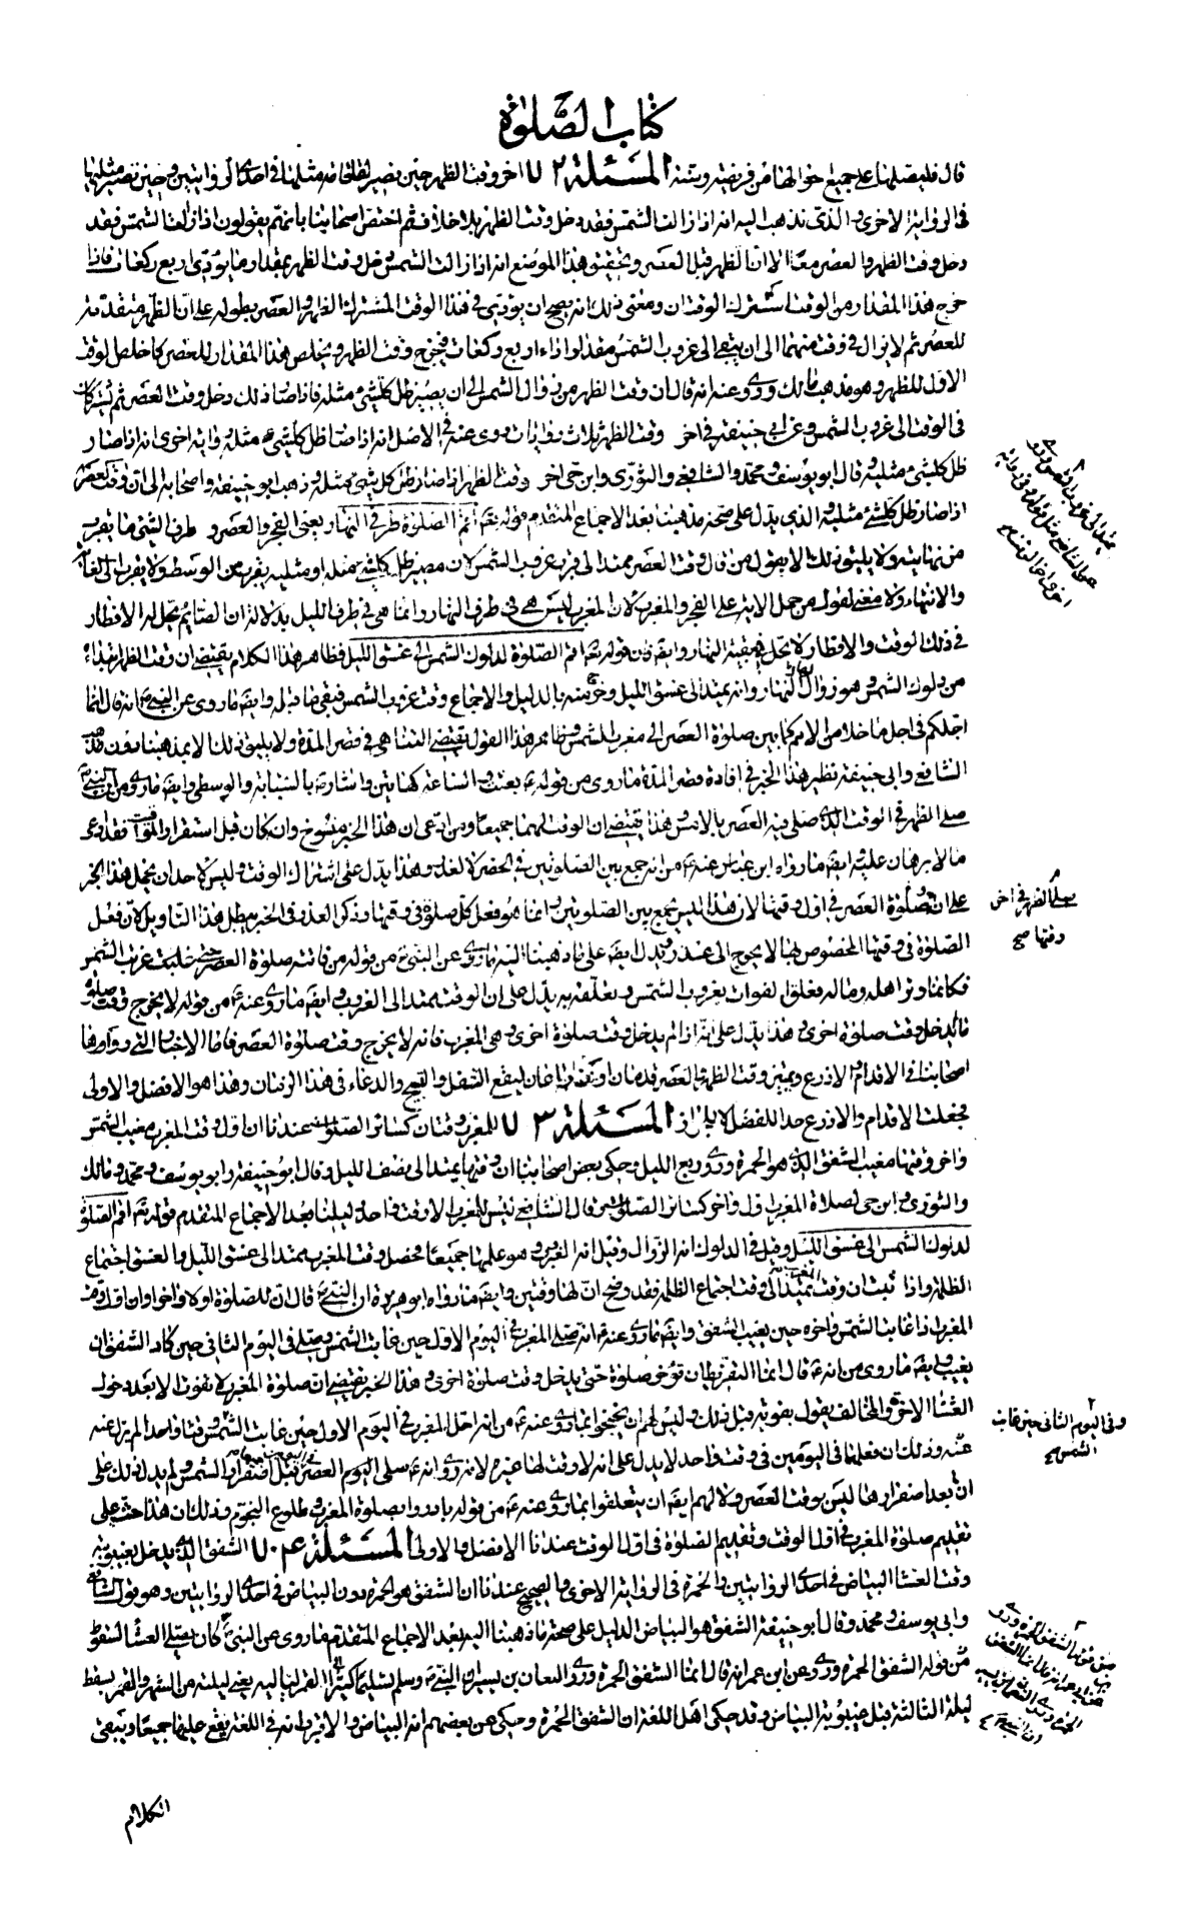 كتاب الصلوة
قال فليصلها على جميع احوالها من فريضة وسنة المسئلة ٧٢ اخر وقت الظهر حين يصير لقائمة مثلها في احدى الروايتين وحين تصير مثليها
في الرواية الاخرى والذي نذهب اليه انه اذا زالت الشمس فقد دخل وقت الظهر بلا خلاف ثم اختص اصحابنا بانهم يقولون اذا زالت الشمس فقد
دخل وقت الظهر والعصر معا الا ان الظهر قبل العصر وتحقيق هذا الموضع انه اذا زالت الشمس دخل وقت الظهر بمقدار ما يؤدي اربع ركعات فاذا
خرج هذا المقدار من الوقت اشترك الوقتان ومعنى ذلك انه يصح ان يؤدي في هذا الوقت المشترك الظهر والعصر بطوله على ان الظهر متقدمة
للعصر ثم لا يزال في وقت منهما الى ان ينتهي الى غروب الشمس مقدار اداء اربع ركعات فيخرج وقت الظهر ويخلص هذا المقدار للعصر كما خلص الوقت
الاول للظهر وهو مذهب مالك وروى عنه انه قال ان وقت الظهر من زوال الشمس الى ان يصير ظل كل شيء مثله فاذا صار ذلك دخل وقت العصر ثم يشتركان
في الوقت الى غروب الشمس وعن ابي حنيفة في اخر وقت الظهر ثلاث روايات روى عنه في الاصل انه اذا صار ظل كل شيء مثله ورواية اخرى انه اذا صار
ظل كل شيء مثليه وقال ابو يوسف ومحمد والشافعي والثوري وابن حي اخر وقت الظهر اذا صار ظل كل شيء مثله وذهب ابو حنيفة واصحابه الى ان وقت العصر
اذا صار ظل كل شيء مثليه والذي يدل على صحة مذهبنا بعد الاجماع المتقدم قوله تعالى اقم الصلوة طرفي النهار يعني الفجر والعصر وطرف الشيء ما يقرب
من نهايته ولا يليق ذلك الا بقول من قال وقت العصر ممتد الى قرب غروب الشمس لان مصير ظل كل شيء مثله او مثليه يقرب من الوسط ولا يقرب الى الغاية
والانتهاء ولا معنى لقول من حمل الاية على الفجر والمغرب لان المغرب ليس هي في طرف النهار وانما هي في طرف الليل بدلالة ان الصائم يحل له الافطار
في ذلك الوقت والافطار لا يحل في بقية النهار وايضا من قوله تعالى اقم الصلوة لدلوك الشمس الى غسق الليل فظاهر هذا الكلام يقتضي ان وقت الظهر ابتداءه
من دلوك الشمس وهو زوال النهار وانه يمتد الى غسق الليل وخرج منه بالدليل والاجماع وقت غروب الشمس فبقي ما قبله وايضا ما روى عن النبي ص انه قال انما
اجلكم في اجل ما خلا من الامم كما بين صلوة العصر الى مغرب الشمس وظاهر هذا القول يقتضي التناهي في قصر المدة ولا يليق ذلك الا بمذهبنا دون مذهب
الشافعي وابي حنيفة نظير هذا الخبر في افادة قصر المدة ما روى من قوله ع بعثت والساعة كهاتين واشار ع بالسبابة والوسطى وايضا ما روى من ان النبي ص
صلى الظهر في الوقت الذي صلى فيه العصر بالامس وهذا يقتضي ان الوقت لهما جميعا ومن ادعى ان هذا الخبر منسوخ وان كان قبل استقرار المواقيت فقد ادعى
ما لا برهان عليه وايضا ما رواه ابن عباس عنه ع من انه جمع بين الصلوتين في الحضر لا لعذر وهذا يدل على اشتراك الوقت وليس لاحد ان يحمل هذا الخبر
على انه صلوة العصر في اول وقتها لان هذا ليس بجمع بين الصلوتين وانما هو فعل كل صلوة في وقتها وذكر العذر في الخبر يبطل هذا التاويل لان فعل
الصلوة في وقتها المخصوص لها لا يحوج الى عذر ويدل ايضا على ما ذهبنا اليه ما روى عن النبي ص من قوله من فاتته صلوة العصر حتى غابت الشمس
فكانما وتر اهله وماله بعلق الفوات بغروب الشمس وتعلقه به يدل على ان الوقت يمتد الى الغروب وايضا ما روى عنه ع من قوله لا يخرج وقت صلوة
ما لم يدخل وقت صلوة اخرى وهذا يدل على انه اذا لم يدخل وقت صلوة اخرى وهي المغرب فانه لا يخرج وقت صلوة العصر فاما الاخبار التي رواها
اصحابنا في الاقدام والاذرع وتميز وقت الظهر والعصر قدمان او ذراعان ليقع التنفل والتسبيح والدعاء في هذا الزمان وهذا هو الافضل والاولى
فجعلت الاقدام والاذرع حدا للفضل لا للجواز المسئلة ٧٣ للمغرب وقتان كسائر الصلوات عندنا ان اول وقت المغرب مغيب الشمس
واخر وقتها مغيب الشفق الذي هو الحمرة وروى ربع الليل وحكى بعض اصحابنا ان وقتها يمتد الى نصف الليل وقال ابو حنيفة وابو يوسف ومحمد ومالك
والثوري وابن حي لصلاة المغرب اول واخر كسائر الصلوات وقال الشافعي ليس للمغرب الا وقت واحد دليلنا بعد الاجماع المتقدم قوله تعالى اقم الصلوة
لدلوك الشمس الى غسق الليل وقيل في الدلوك انه الزوال وقيل انه الغروب وهو عليهما جميعا فحصل وقت المغرب ممتد الى غسق الليل والغسق اجتماع
الظلمة واذا ثبت ان وقت المغرب يمتد الى وقت اجتماع الظلمة فقد وضح ان لها وقتين وايضا ما رواه ابو هريرة ان النبي ع قال ان للصلوة اولا واخرا وان اول وقت
المغرب اذا غابت الشمس واخره حين يغيب الشفق وايضا ما روى عنه ع انه صلى المغرب في اليوم الاول حين غابت الشمس وصلى في اليوم الثاني حين كاد الشفق ان
يغيب وايضا ما روى من انه ع قال انما التفريط ان تؤخر صلوة حتى يدخل وقت صلوة اخرى وهذا الخبر يقتضي ان صلوة المغرب لا تفوت الا بعد دخول
العشاء الاخرة والمخالف يقول بفوته قبل ذلك وليس لهم ان يحتجوا بما روى عنه ع من انه صلى المغرب في اليوم الاول حين غابت الشمس وقتا واحدا لم يزل عنه
عنه وذلك ان فعلها في اليومين في وقت واحد لا يدل على انه لا وقت لها غيره لانه روى انه ع صلى اليوم العصر قبل اصفرار الشمس ولم يدل ذلك على
ان بعد اصفرارها ليس بوقت العصر ولا لهم ايضا ان يتعلقوا بما روى عنه ع من قوله بادروا بصلوة المغرب طلوع النجوم وذلك ان هذا حث على
تقديم صلوة المغرب في اول الوقت وتقديم الصلوة في اول الوقت عندنا الافضل والاولى المسئلة ٧٠٤ الشفق الذي يدخل بغيبوبته
وقت العشاء البياض في احدى الروايتين والحمرة في الرواية الاخرى والصحيح عندنا ان الشفق هو الحمرة دون البياض في احدى الروايتين وهو قول الشافعي
وابي يوسف ومحمد وقال ابو حنيفة الشفق هو البياض الدليل على صحة ما ذهبنا اليه بعد الاجماع المتقدم ما روى عن النبي ع كان يصلي العشاء لسقوط
من قوله الشفق الحمرة وروى عن ابن عمر انه قال انما الشفق الحمرة وروى النعمان بن بشير ان النبي ص وسلم تسليما كثيرا القمر ليلة الثالثة يعني ليلة من الشهر والقمر يسقط
ليلة الثالثة قبل غيبوبة البياض وقد حكى اهل اللغة ان الشفق الحمرة وحكى عن بعضهم انه البياض والاقرب انه في اللغة يقع عليهما جميعا وينبغي
يصلى الظهر في اخر
وقتها صح
وفي اليوم الثاني حين غابت
الشمس
الكلام